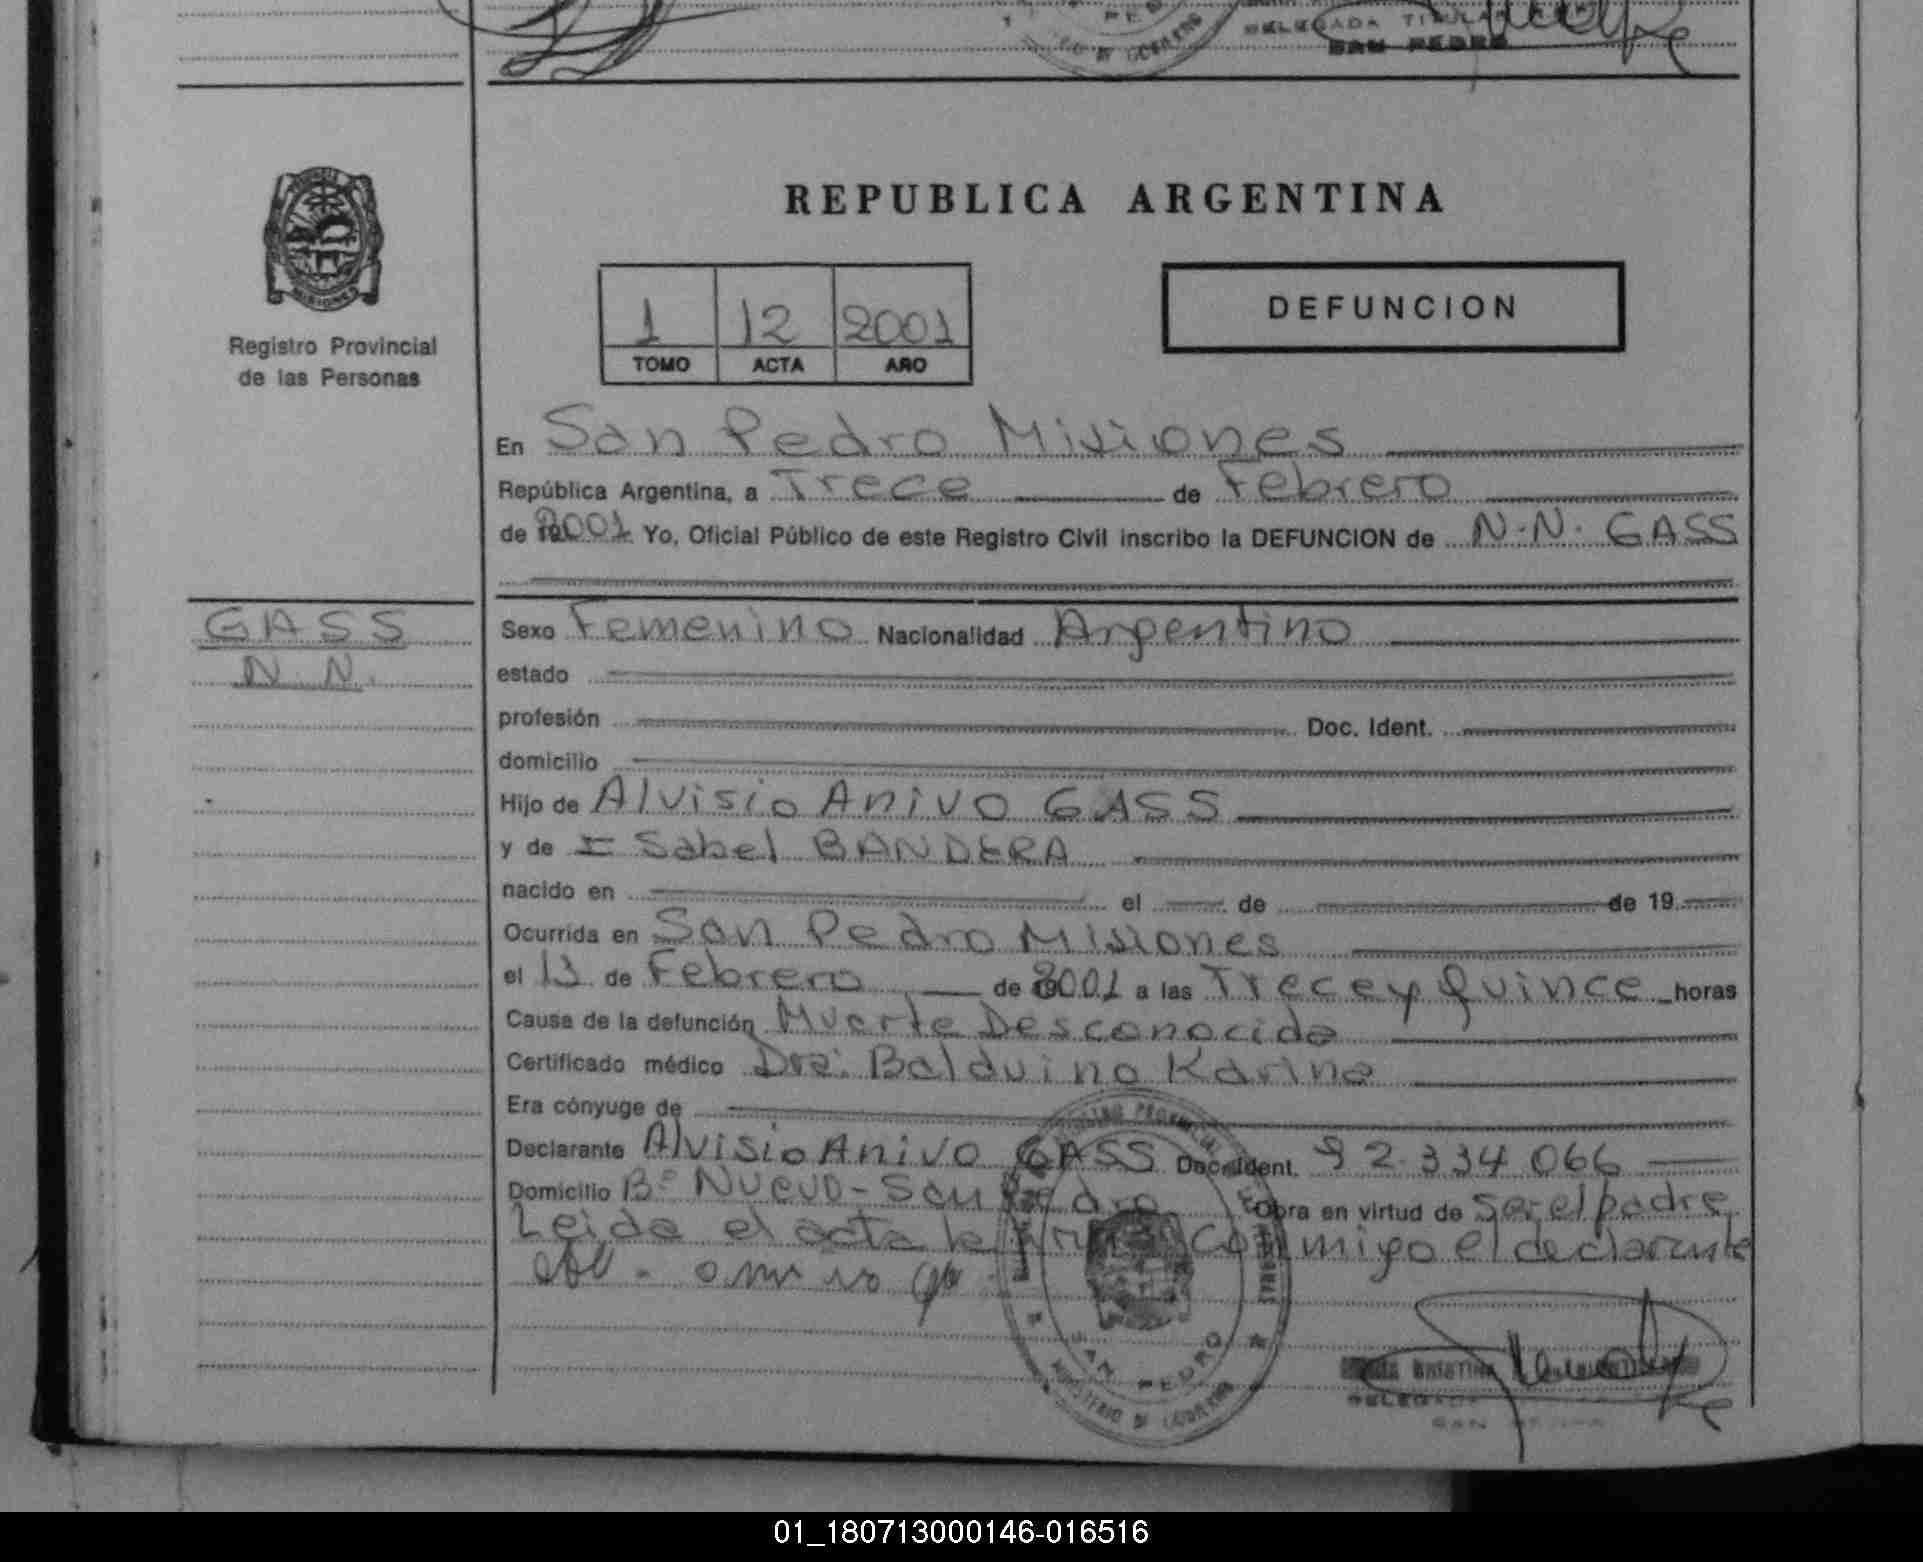 DELEGADA TITULAR
SAN PEDRO
MISIONES
Registro Provincial
de las Personas
REPUBLICA ARGENTINA
1 12 2001
TOMO ACTA AÑO
DEFUNCION
En San Pedro Misiones
República Argentina, a Trece de Febrero
de 2001 Yo, Oficial Público de este Registro Civil inscribo la DEFUNCION de N.N. GASS
GASS
N.N.
Sexo Femenino Nacionalidad Argentino
estado
profesión Doc. Ident.
domicilio
Hijo de Alvisio Anivo GASS
y de Isabel BANDERA
nacido en el de de 19
Ocurrida en San Pedro Misiones
el 13 de Febrero de 2001 a las Trece y Quince horas
Causa de la defunción Muerte Desconocida
Certificado médico Dra: Balduino Karina
Era cónyuge de
Declarante Alvisio Anivo GASS Doc. Ident. 92.334.066
Domicilio B° Nuevo - San Pedro Obra en virtud de ser el padre
Leida el acta la firma conmigo el declarante
SAN PEDRO
MINISTERIO DE GOBIERNO
DELEGADA
01_180713000146-016516